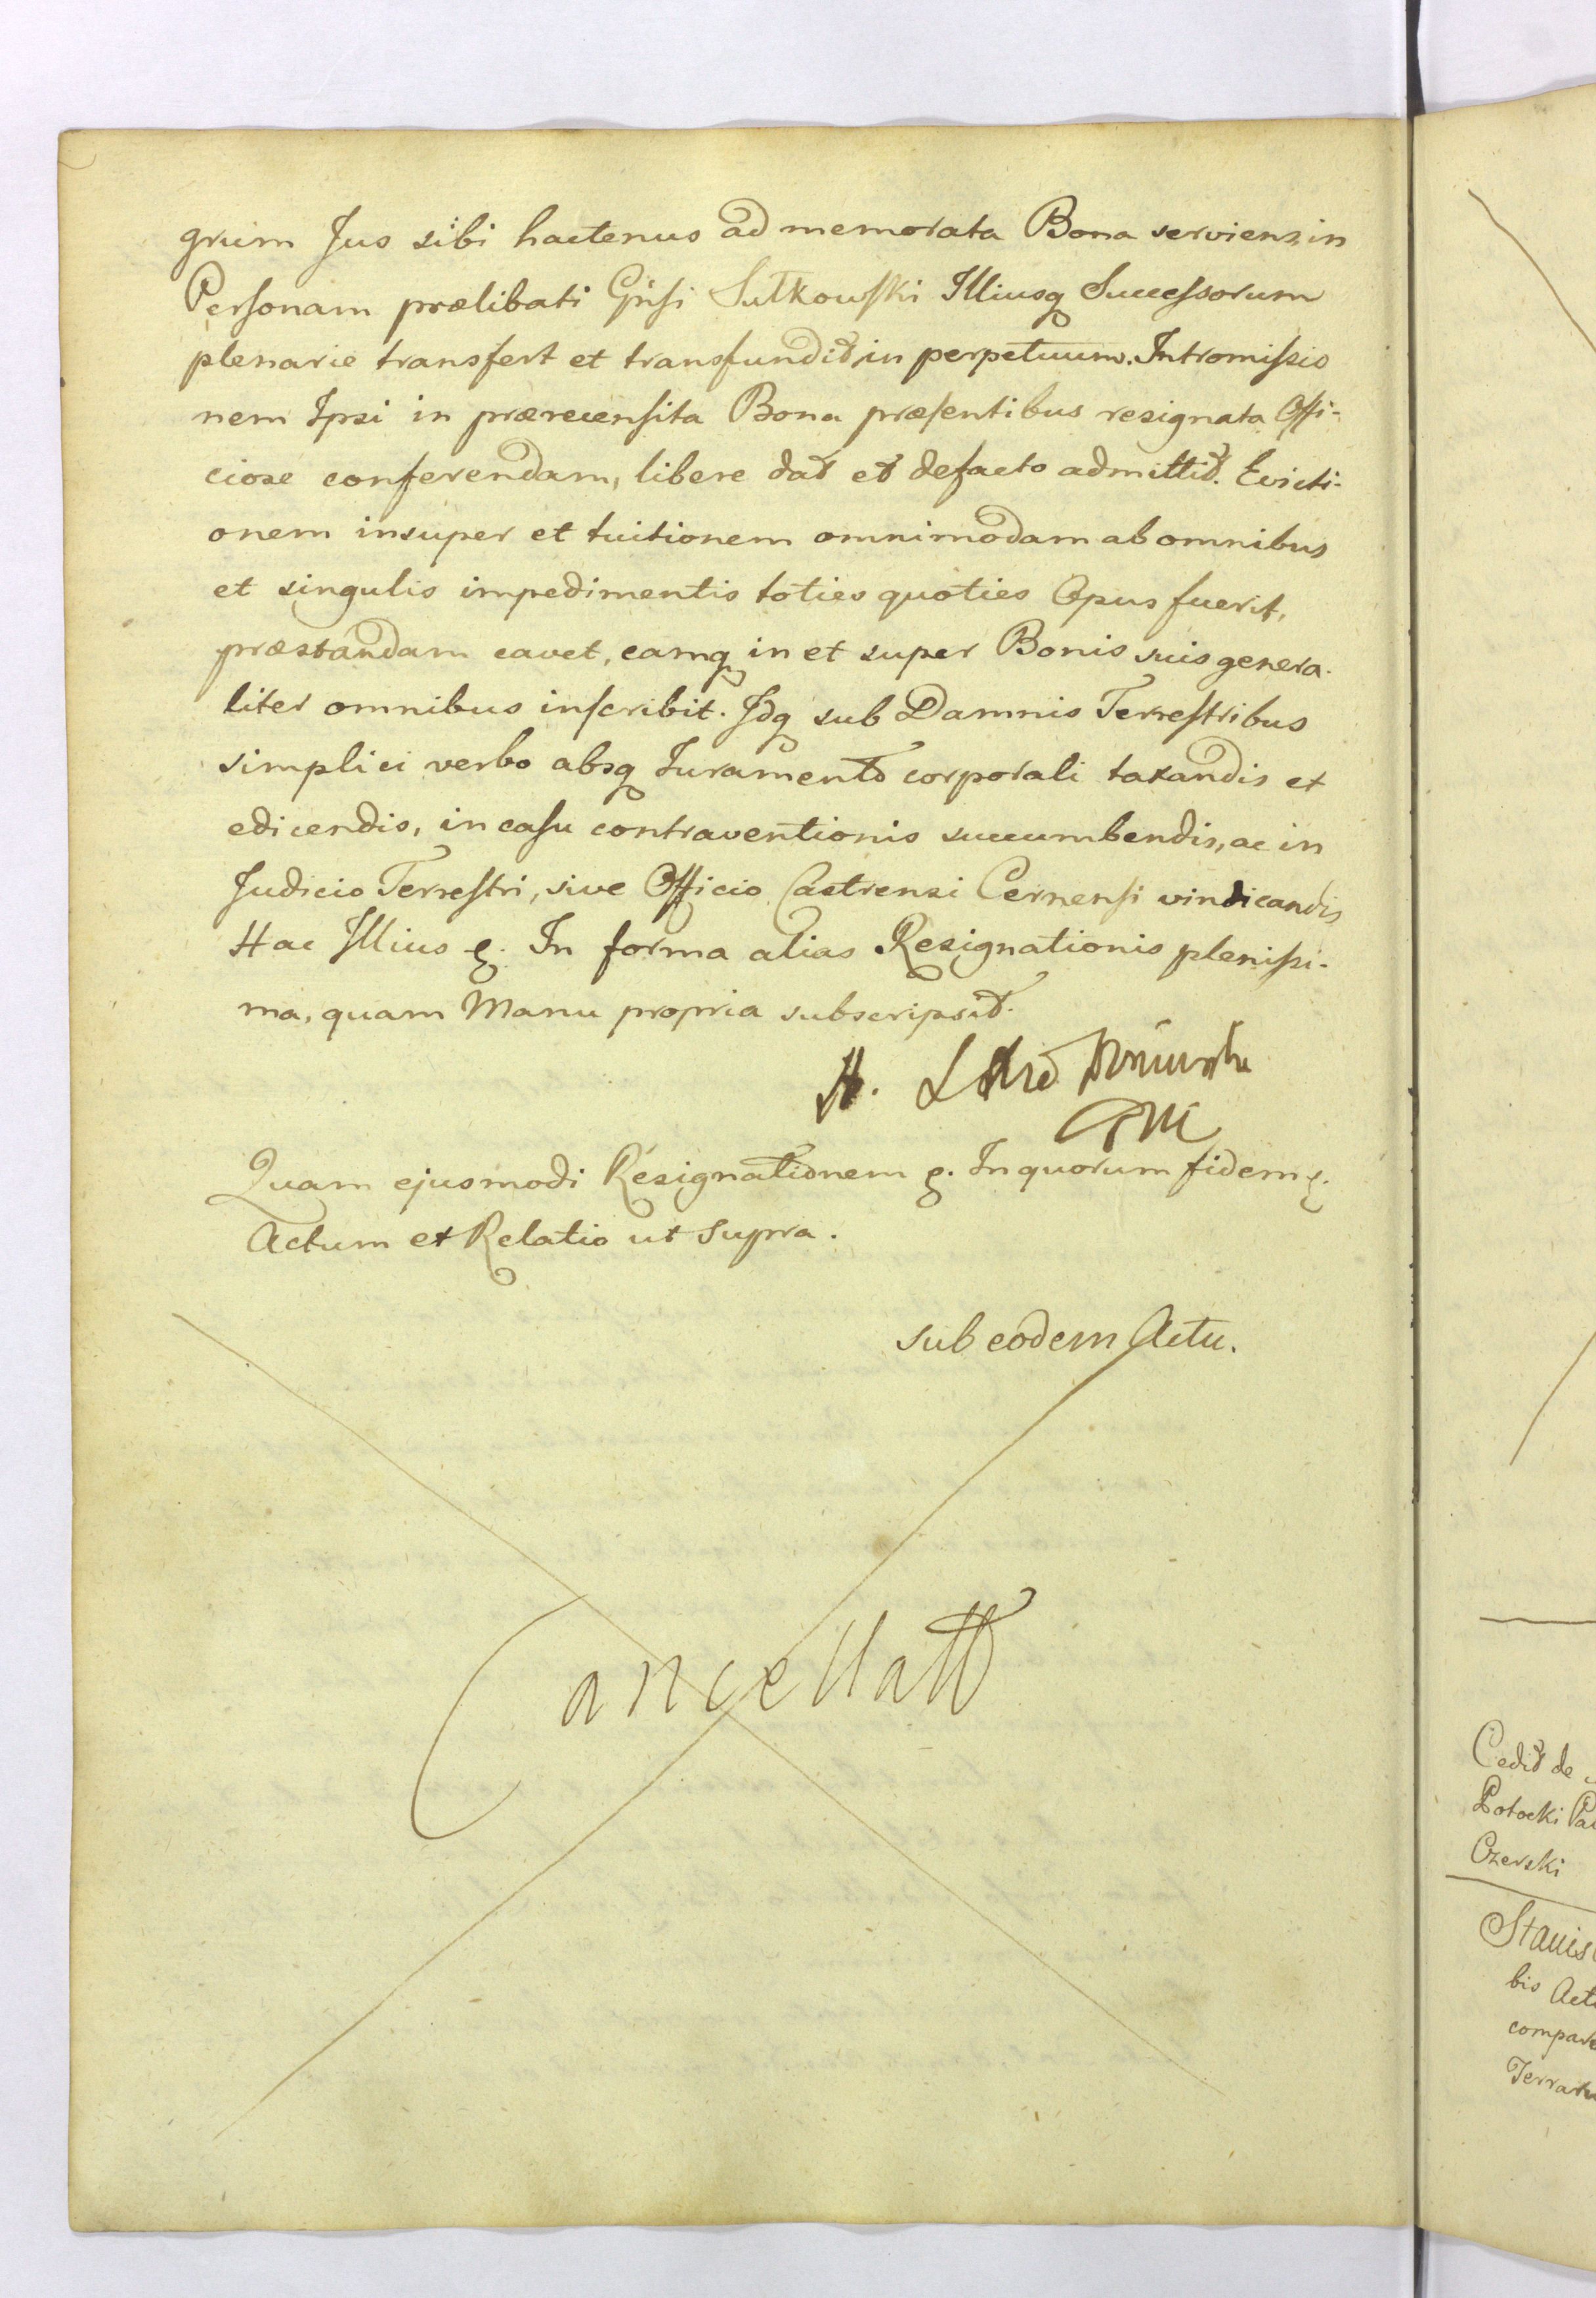 grum Jus sibi hactenus ad memorata Bona serviens, in
Personam prælibati Gñsi Sułkowſki Illiusq Succeſsorum
plenarie transfert et transfundit, in perpetuum. Intromiſsio
nem Ipsi in prærecenſita Bona præſentibus resignata Offi-
ciose conferendam, libere dat et defacto admittit. Evicti-
onem insuper et tuitionem omnimodam ab omnibus
et singulis impedimentis toties quoties Opus fuerit,
præstandam cavet, eamq in et super Bonis suis genera-
liter omnibus inſcribit. Idq sub Damnis Terreſtribus
simplici verbo absq Juramento corporali taxandis et
edicendis, in caſu contraventionis succumbendis, ac in
Judicio Terreſtri, sive Officio Castrensi Cernenſi vindicandis
Hac Illius &. In forma alias Resignationis pleniſsi-
ma, quam Manu propria subscripsit.
Quam ejusmodi Resignationem &. In quorum fidem &.
Actum et Relatio ut supra.
sub eodem Actu.
Cancellatt
Cedit de
Potocki
Czerski
bis